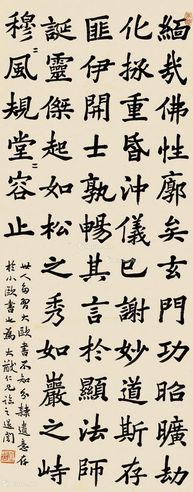 緬哉佛性廓矣玄門功昭曠劫
化拯重昏沖儀已謝妙道斯存
匪伊開士孰暢其言於顯法師
誕靈傑起如松之秀如巖之峙
穆〻風規堂〻容止
世人習大歐書不知分隸遺意存
於小歐書也為大猷仁兄臨之